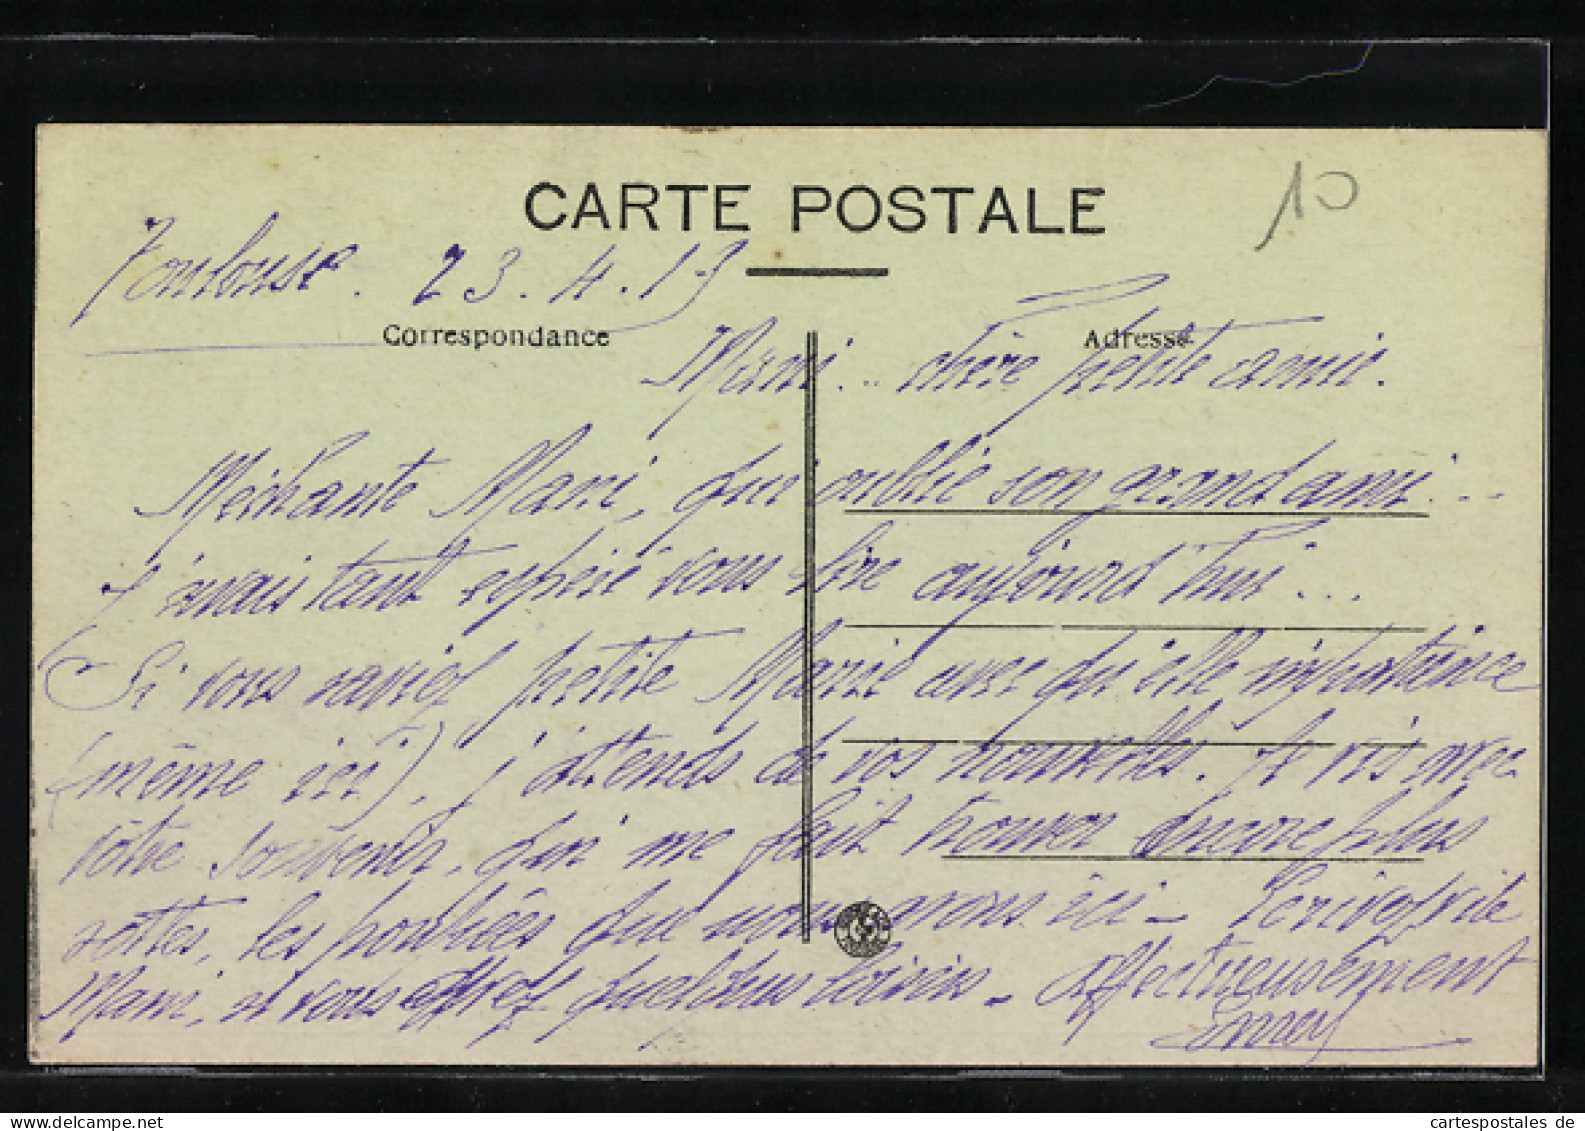 CARTE POSTALE
10
Toulouse. 23.4.13
Correspondance
Adresse
Mani... chère petite amie.
Méchante Mani, qui oublie son grand ami...
J'avais tant espéré vous lire aujourd'hui...
Si vous saviez petite Manie avec qu'elle impatience
(même ici), j'attends de vos nouvelles. Je vis avec
vôtre souvenir, qui me fait trouver encore plus
sottes, les poupées que nous avons ici - Ecrivez vite
Mani, si vous avez quelques loisirs - Affectueusement
cartespostales de